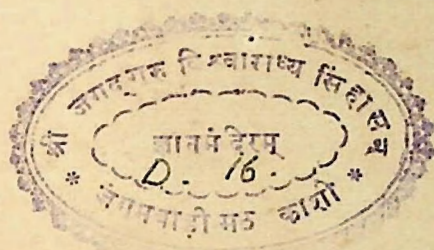 श्री जगद्गुरु विश्वाराध्य सिंहासन
ज्ञानमंदिरम्
D. 16.
* जंगमवाड़ी मठ काशी *